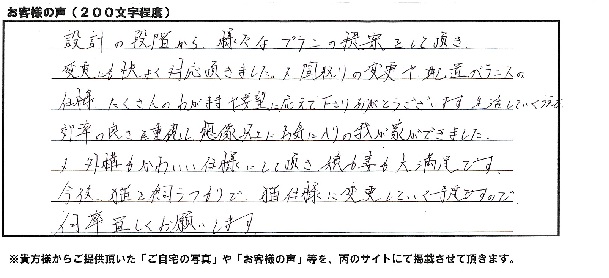 お客様の声（２００文字程度）
設計の段階から、様々なプランの提案をして頂き、
変更にも快よく対応頂きました。又間取りの変更や
仕様、たくさんのわがまま希望に応えて下さりありがとうございます。生活していく
効率の良さを重視し想像以上にお気に入りの我が家ができました。
又外構もかわいい仕様にして頂き 大満足です。
今後、猫を飼うつもりで、猫仕様に変更していく予定ですので
何卒宜しくお願いします
※貴方様からご提供頂いた「ご自宅の写真」や「お客様の声」等を、丙のサイトにて掲載させて頂きます。